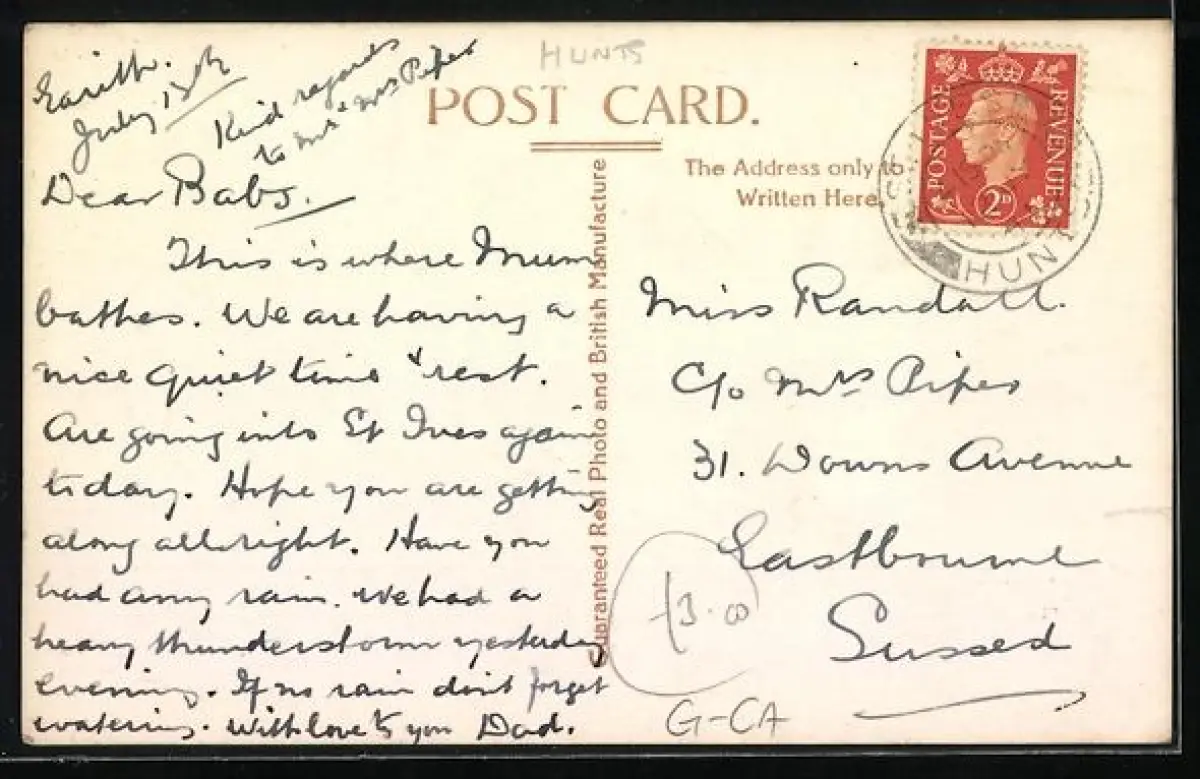 HUNTS
Earith.
July 13th
Kind regards
to Mr & Mrs Pipes
POST CARD.
Dear Babs.
This is where Mum
bathes. We are having a
nice quiet time & rest.
Are going into St Ives again
today. Hope you are getting
along allright. Have you
had any rain. We had a
heavy thunderstorm yesterday
evening. If no rain don't forget
watering. With love to you Dad.
Guaranteed Real Photo and British Manufacture
The Address only to
Written Here.
POSTAGE
REVENUE
2D
HUNTS
Miss Randall.
C/o Mrs Pipes
31. Downs Avenue
Eastbourne
Sussex
£3.00
G-CA